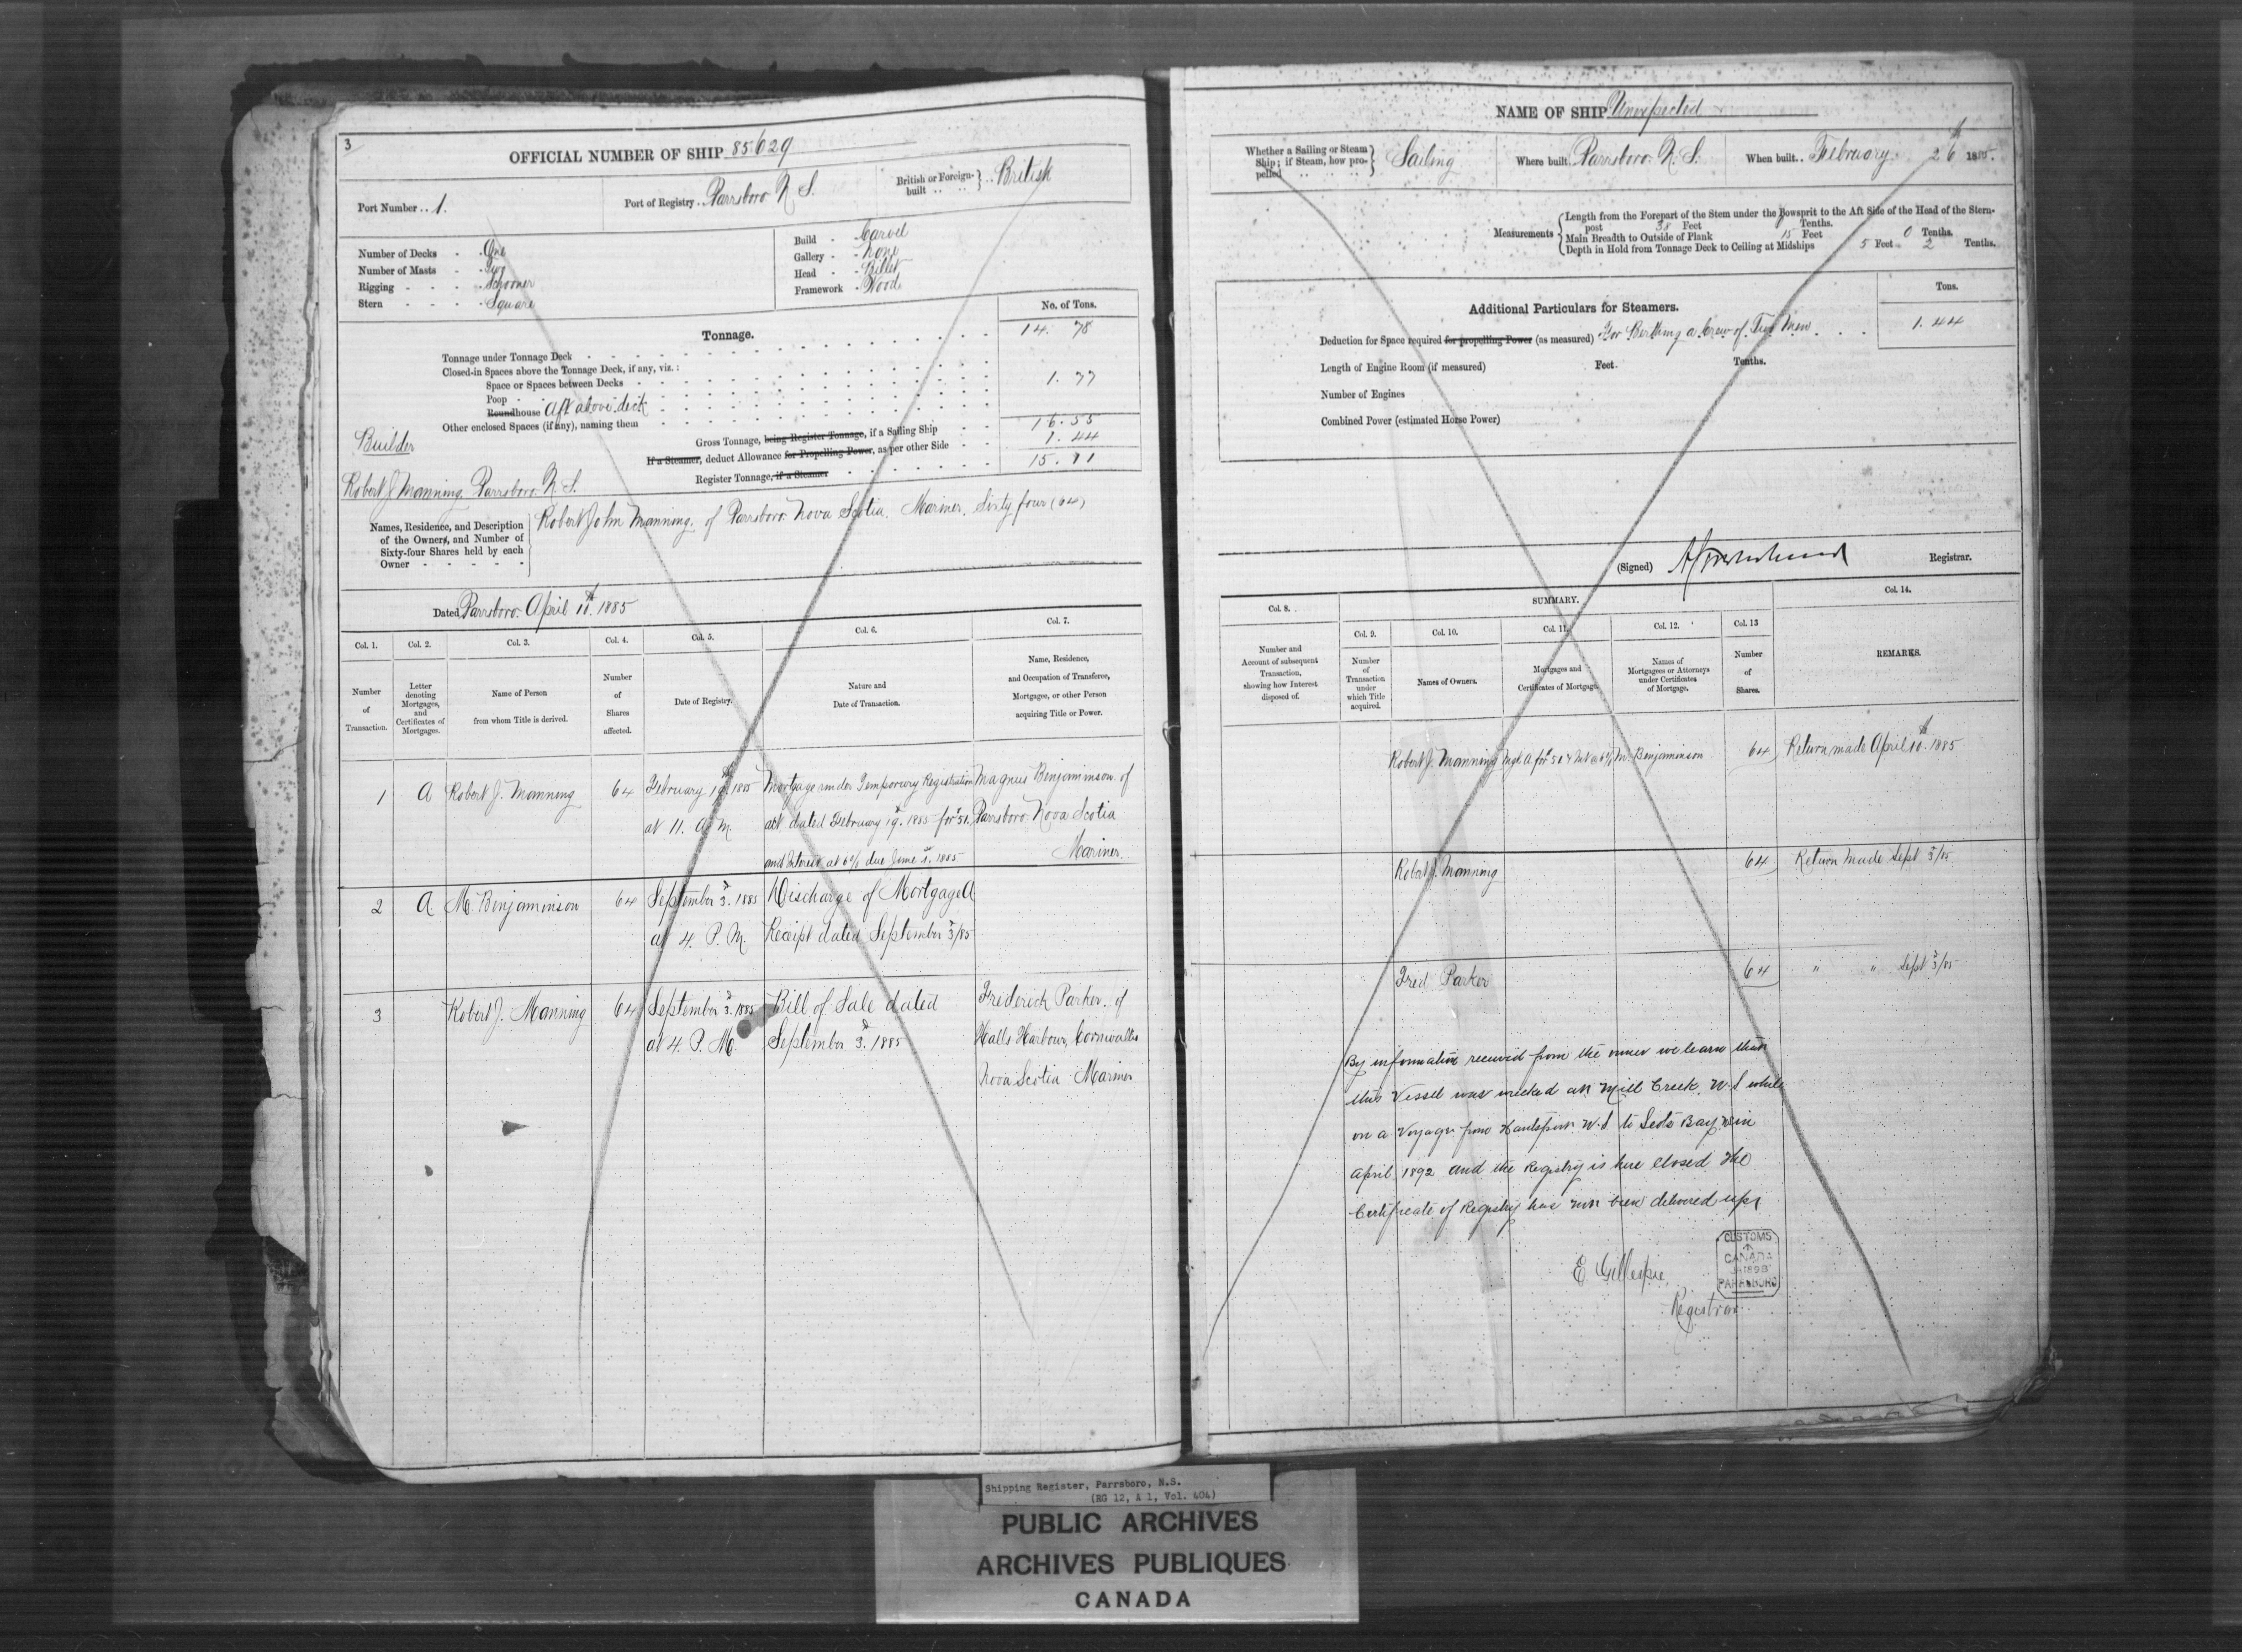 3
OFFICIAL NUMBER OF SHIP 85629
Port Number . . 1.
Port of Registry . Parrsboro N. S.
British or Foreign-built . . British
Number of Decks - One
Number of Masts - Two
Rigging - - - Schooner
Stern - - - Square
Build - Carvel
Gallery - None
Head - Billet
Framework - Wood
No. of Tons.
Tonnage.
Tonnage under Tonnage Deck 14. 78
Closed-in Spaces above the Tonnage Deck, if any, viz. :
Space or Spaces between Decks
Poop
Roundhouse Aft above deck 1. 77
Other enclosed Spaces (if any), naming them
Gross Tonnage, being Register Tonnage, if a Sailing Ship 16. 55
If a Steamer, deduct Allowance for Propelling Power, as per other Side 1. 44
Register Tonnage, if a Steamer 15. 11
Builder
Robert J Manning Parrsboro N. S.
Names, Residence, and Description of the Owners, and Number of Sixty-four Shares held by each Owner
Robert John Manning, of Parrsboro Nova Scotia. Mariner, Sixty four (64)
Dated Parrsboro April 10th 1885
Col. 1. Col. 2. Col. 3. Col. 4. Col. 5. Col. 6. Col. 7.
Number of Transaction.
Letter denoting Mortgages, and Certificates of Mortgages.
Name of Person from whom Title is derived.
Number of Shares affected.
Date of Registry.
Nature and Date of Transaction.
Name, Residence, and Occupation of Transferee, Mortgagee, or other Person acquiring Title or Power.
1 A Robert J. Manning 64 February 19th 1885 Mortgage under Temporary Registration Magnus Benjaminson of
at 11. A. M. dated February 19. 1885 for $51. Parrsboro Nova Scotia
and Interest at 6% due June 1st 1885 Mariner.
2 A. M. Benjaminson 64 September 3d. 1885 Discharge of Mortgage A
at 4. P. M. Receipt dated September 3d/85
3 Robert J. Manning 64 September 3d. 1885 Bill of Sale dated Frederick Parker. of
at 4. P. M. September 3d. 1885 Halls Harbour, Cornwallis
Nova Scotia Mariner
NAME OF SHIP Unexpected
Whether a Sailing or Steam Ship ; if Steam, how propelled Sailing
Where built. Parrsboro N. S.
When built. . February 26th 1885.
Measurements
Length from the Forepart of the Stem under the Bowsprit to the Aft Side of the Head of the Stern-post 38 Feet Tenths.
Main Breadth to Outside of Plank 15 Feet 0 Tenths.
Depth in Hold from Tonnage Deck to Ceiling at Midships 5 Feet 2 Tenths.
Additional Particulars for Steamers.
Tons.
Deduction for Space required for propelling Power (as measured) For Berthing a Crew of Two Men 1. 44
Length of Engine Room (if measured) Feet. Tenths.
Number of Engines
Combined Power (estimated Horse Power)
(Signed) Registrar.
SUMMARY.
Col. 8. Col. 9. Col. 10. Col. 11. Col. 12. Col. 13 Col. 14.
Number and Account of subsequent Transaction, showing how Interest disposed of.
Number of Transaction under which Title acquired.
Names of Owners.
Mortgages and Certificates of Mortgage.
Names of Mortgagees or Attorneys under Certificates of Mortgage.
Number of Shares.
REMARKS.
Robert J. Manning Mge A for $51 & Int @ 6% M. Benjaminson 64 Return made April 10th 1885
Robert J. Manning 64 Return Made Sept 3d/85
Fred Parker 64 " " Sept 3d/85
By information received from the owner we learn that
this Vessel was wrecked at Mill Creek, N. S while
on a Voyage from Hantsport N. S to Scots Bay NS in
April 1892 and the Registry is here closed The
Certificate of Registry has not been delivered up
E Gillespie
Registrar
CUSTOMS
CANADA
1898
PARRSBORO
Shipping Register, Parrsboro, N.S.
(RG 12, A 1, Vol. 404)
PUBLIC ARCHIVES
ARCHIVES PUBLIQUES
CANADA